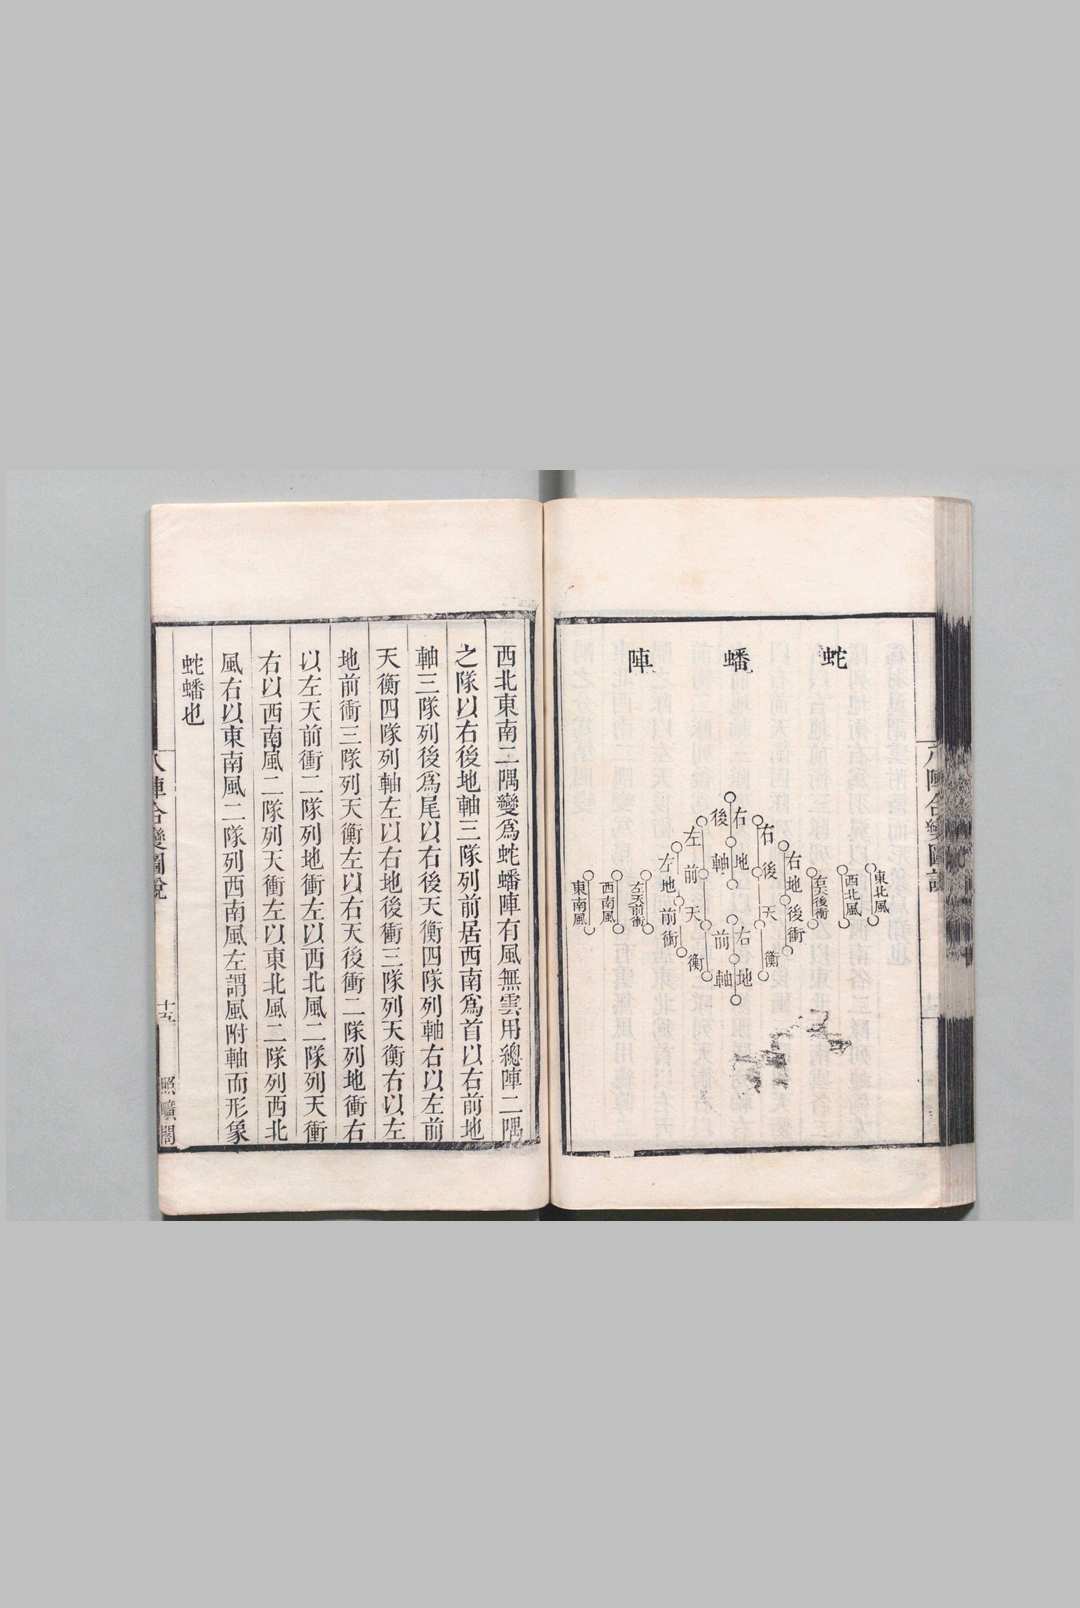 蛇蟠陣
右後地軸
右前地軸
右後天衡
左前天衡
右地後衝
左地前衝
右天後衝
左天前衝
西北風
東北風
西南風
東南風
西北東南二隅變爲蛇蟠陣有風無雲用總陣二隅
之隊以右後地軸三隊列前居西南爲首以右前地
軸三隊列後爲尾以右後天衡四隊列軸右以左前
天衡四隊列軸左以右地後衝三隊列天衡右以左
地前衝三隊列天衡左以右天後衝二隊列地衝右
以左天前衝二隊列地衝左以西北風二隊列天衝
右以西南風二隊列天衝左以東北風二隊列西北
風右以東南風二隊列西南風左謂風附軸而形象
蛇蟠也
八陣合變圖說
十五
照曠閣